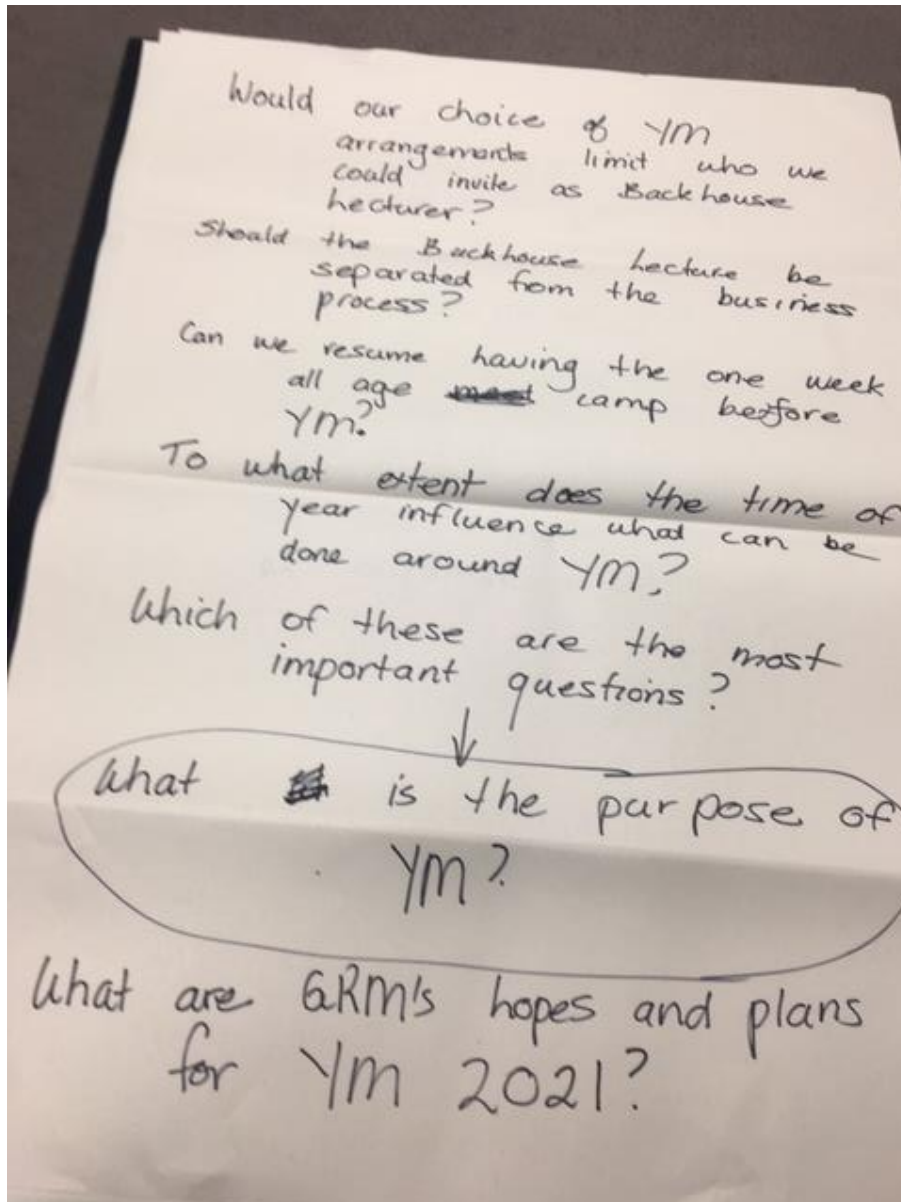 Would our choice of YM
arrangements limit who we
could invite as Backhouse
Lecturer?
Should the Backhouse Lecture be
separated from the business
process?
Can we resume having the one week
all age camp before
YM?
To what extent does the time of
year influence what can be
done around YM?
Which of these are the most
important questions?
What is the purpose of
YM?
What are QRM's hopes and plans
for YM 2021?